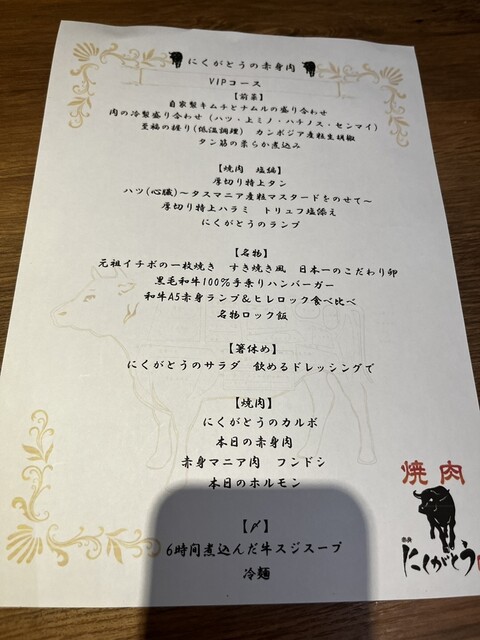 にくがとうの赤身肉
VIPコース
【前菜】
自家製キムチとナムルの盛り合わせ
肉の冷製盛り合わせ (ハツ・上ミノ・ハチノス・センマイ)
至福の握り(低温調理) カンボジア産粒生胡椒
タン筋の柔らか煮込み
【焼肉 塩編】
厚切り特上タン
ハツ(心臓)～タスマニア産粒マスタードをのせて～
厚切り特上ハラミ トリュフ塩添え
にくがとうのランプ
【名物】
元祖イチボの一枚焼き すき焼き風 日本一のこだわり卵
黒毛和牛100%手乗りハンバーガー
和牛A5赤身ランプ&ヒレロック食べ比べ
名物ロック飯
【箸休め】
にくがとうのサラダ 飲めるドレッシングで
【焼肉】
にくがとうのカルボ
本日の赤身肉
赤身マニア肉 フンドシ
本日のホルモン
【〆】
6時間煮込んだ牛スジスープ
冷麺
焼肉
にくがとう